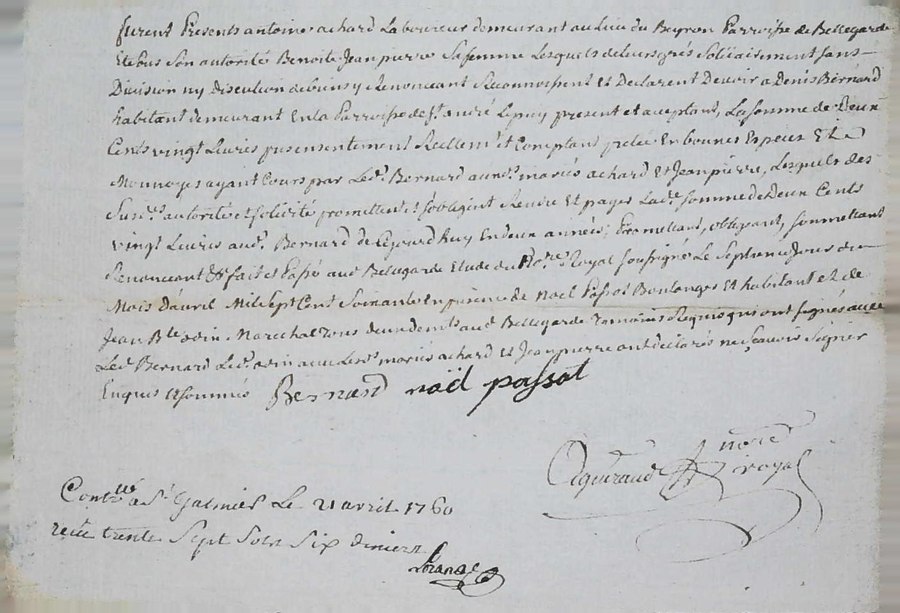 furent Presents antoine achard Laboureur demeurant au Lieu du Beyron Parroisse de Bellegarde
et de Son autorité Benoite Jeanpierre Sa femme Lesquels de leurs grés Solidairement sans
Division ny discution de biens y Renoncant Reconnoissent et Declarent Devoir a Denis Bernard
habitant demeurant En la Parroisse de St. andré Lepuy present et acceptant, La somme de Deux
Cents vingt Livres presentement Réellemt. et Comptant pretée En bonnes Especes Et de
Monnoyes ayant Cours par Led. Bernard auxds. mariés achard Et Jeanpierre, Lesquels des
Susd. autorité et solidité promettent et s'obligent Rendre Et payer Lade. somme de Deux Cents
vingt Livres aud. Bernard de Cejourd huy En deux années; Promettant, obligeant, soumettant
Renoncant &a fait et Passé aud. Bellegarde Etude du No.re Royal soussigné Le Septieme Jour du
Mois Davril Mil Sept Cent Soixante En presence de Noel Passot Boulanger Et habitant et de
Jean Bte. odin Marechal Tous deux demts. aud. Bellegarde Temoins Requis qui ont signés avec
Led. Bernard Led. odin avec Lesds. mariés achard et Jeanpierre ont déclarés ne sçavoir Signer
Enquis et sommés Bernard noël passot
notre
royal
Contllé a St. Galmier Le 21 avril 1760
recu trente Sept Sols Six deniers